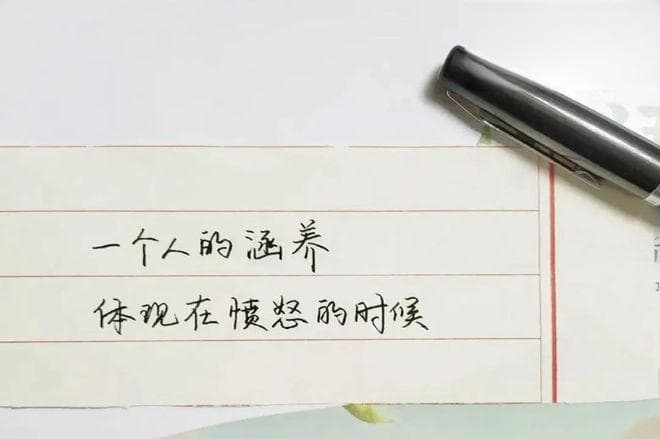 一个人的涵养
体现在愤怒的时候